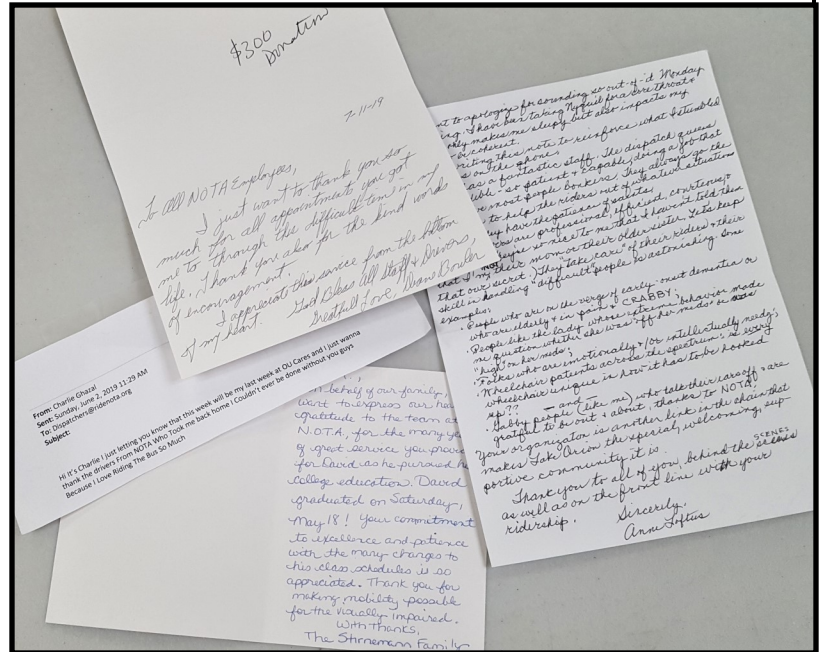 $300
Donation
7-11-19
To All NOTA Employees,
I just want to thank you so
much for all appointments you got
me to through this difficult tem in my
life. Thank you also for the kind words
of encouragement.
I appreciate this service from the bottom
of my heart. God Bless All Staff & Drivers,
Greatfull Love, Diane Bouler
From: Charlie Ghazal
Sent: Sunday, June 2, 2019 11:29 AM
To: Dispatchers@ridenota.org
Subject:
Hi It's Charlie I just letting you know that this week will be my last week at OU Cares and I just wanna
thank the drivers From NOTA Who Took me back home I Couldn't ever be done without you guys
Because I Love Riding The Bus So Much
behalf of our family,
want to express our
gratitude to the team at
N.O.T.A, for the many
of great service you
for David as he pursued
college education. David
graduated on Saturday,
May 18! Your commitment
to excellence and patience
with the many changes to
his class schedules is so
appreciated. Thank you for
making mobility possible
for the visually impaired.
With Thanks,
The Stirnemann Family
nt to apologize for sounding so out-of-it Monday
I have been taking Nyquil for a sore throat &
makes me sleepy but also impacts my
coherent.
writing this note to reinforce what I stumbled
on the phone.
as a fantastic staff. The dispatch queens
so patient & capable, doing a job that
most people bonkers. They always go the
to help the riders out of whatever situations
have the patience of saints.
are professional, efficient, courteous, &
so nice to me that I haven't told them
that I'm NOT their mom or their older sister. Let's keep
that our secret.) They "take care" of their riders & their
skill in handling "difficult" people is astonishing. Some
examples:
· People who are on the verge of early-onset dementia or
who are elderly & in pain & CRABBY;
· People like the lady whose extreme behavior made
me question whether she was "off her meds" or
"high" on her meds;
· Folks who are emotionally &/or intellectually needy;
· Wheelchair patients across the spectrum; is every
wheelchair unique in how it has to be hooked
up?? — and —
· Gabby people (like me) who talk their ears off & are
grateful to be out & about, thanks to NOTA!
Your organizaton is another link in the chain that
makes Lake Orion the special, welcoming, sup-
portive community it is.
Thank you to all of you, behind the SCENES
as well as on the front line with your
ridership.
Sincerely,
Anne Loftus